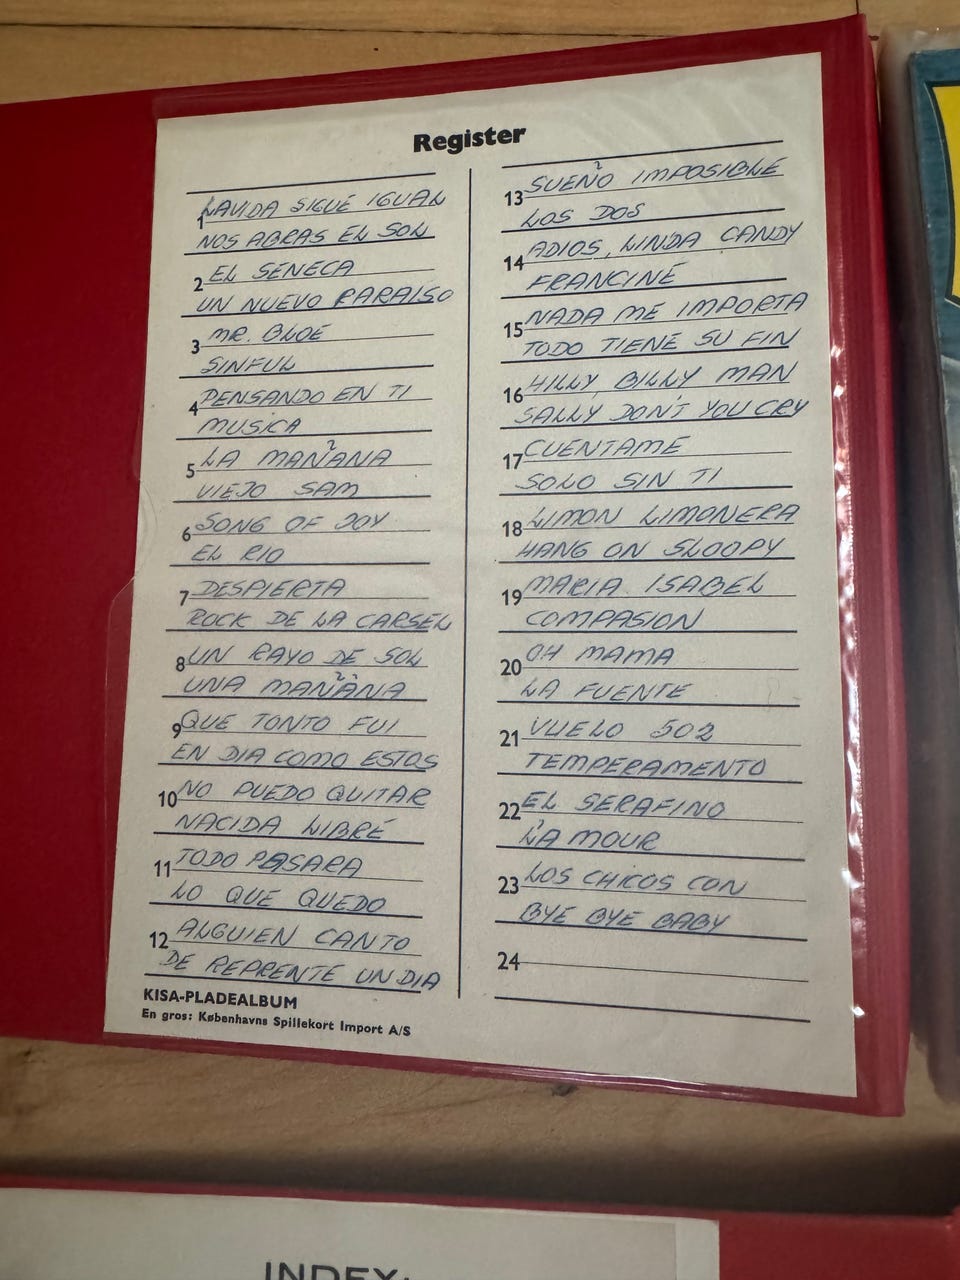 Register
1 LA VIDA SIGUE IGUAL
NOS ABRAS EL SOL
2 EL SENECA
UN NUEVO PARAISO
3 MR. BLOE
SINFUL
4 PENSANDO EN TI
MUSICA
5 LA MAÑANA
VIEJO SAM
6 SONG OF JOY
EL RIO
7 DESPIERTA
ROCK DE LA CARSEL
8 UN RAYO DE SOL
UNA MAÑANA
9 QUE TONTO FUI
EN DIA COMO ESTOS
10 NO PUEDO QUITAR
NACIDA LIBRE
11 TODO PASARA
LO QUE QUEDO
12 ALGUIEN CANTO
DE REPRENTE UN DIA
KISA-PLADEALBUM
En gros: Københavns Spillekort Import A/S
13 SUEÑO IMPOSIBLE
LOS DOS
14 ADIOS, LINDA CANDY
FRANCINE
15 NADA ME IMPORTA
TODO TIENE SU FIN
16 HILLY BILLY MAN
SALLY DON'T YOU CRY
17 CUENTAME
SOLO SIN TI
18 LIMON LIMONERA
HANG ON SLOOPY
19 MARIA ISABEL
COMPASION
20 OH MAMA
LA FUENTE
21 VUELO 502
TEMPERAMENTO
22 EL SERAFINO
L'A MOUR
23 LOS CHICOS CON
BYE BYE BABY
24
INDEX: